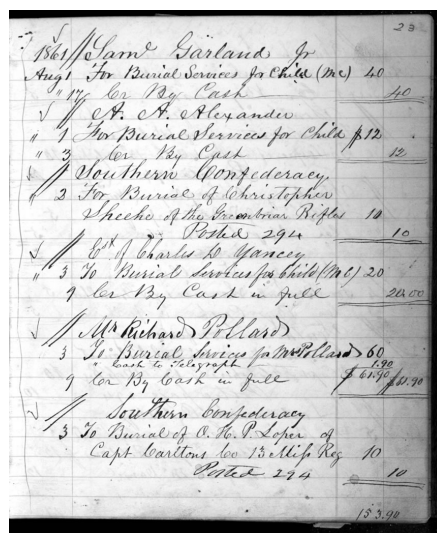 23
1861 // Saml Garland Jr
Aug 1 For Burial Services for Child (M C) 40
" 17 Cr By Cash 40
// A. A. Alexander
" 1 For Burial Services for Child $12
" 3 Cr By Cash 12
// Southern Confederacy.
" 2 For Burial of Christopher
Sheehe of the Greenbriar Rifles 10
Posted 294 10
// Est of Charles D Yancey
" 3 To Burial Services for Child (M C) 20
9 Cr By Cash in full 20.00
// Mr Richard Pollard
3 To Burial Services for Mr Pollard 60
" Cash to Telegraph 1.90
$61.90
9 Cr By Cash in full $61.90
// Southern Confederacy
3 To Burial of O. H. P. Loper of
Capt Carltons Co 13 Miss Reg 10
Posted 294 10
153.90